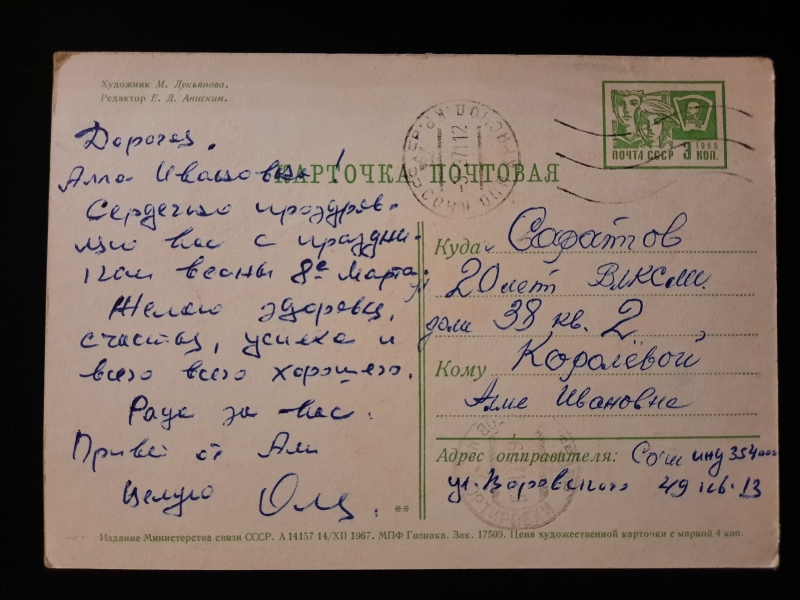 Художник М. Лукьянова.
Редактор Е. Л. Анискин.
ПОЧТА СССР 3 КОП.
1966
КАРТОЧКА ПОЧТОВАЯ
Дорогая,
Алла Ивановна!
Сердечно поздрав-
ляю вас с праздни-
ком весны 8е Марта.
Желаю здоровья,
счастья, успеха и
всего всего хорошего.
Рада за вас.
Привет от Али
Целую Оля.
**
Куда Саратов
ул 20 лет ВЛКСМ.
дом 38 кв. 2,
Кому Королёвой
Алле Ивановне
Адрес отправителя: Сочи инд 354000
ул. Воровского 49 кв. 13
Издание Министерства связи СССР. А 14157 14/XII 1967. МПФ Гознака. Зак. 17509. Цена художественной карточки с маркой 4 коп.